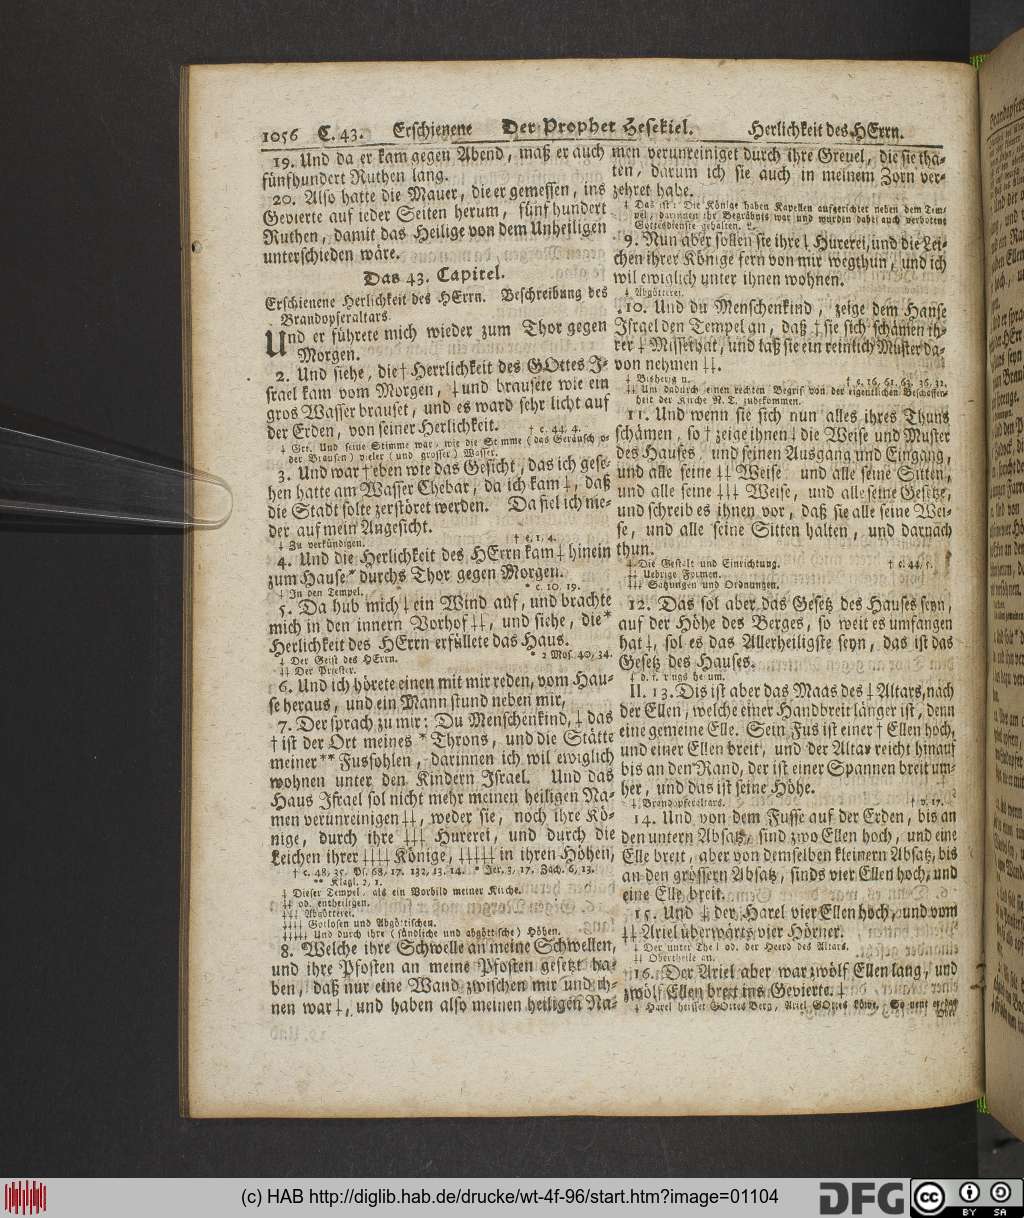 1056 C. 43. Erschienene Der Prophet Hesekiel. Herlichkeit des HErrn.
19. Und da er kam gegen Abend, maß er auch
fünfhundert Ruthen lang.
20. Also hatte die Mauer, die er gemessen, ins
Gevierte auf ieder Seiten herum, fünf hundert
Ruthen, damit das Heilige von dem Unheiligen
unterschieden wäre.
Das 43. Capitel.
Erschienene Herlichkeit des HErrn. Beschreibung des
Brandopferaltars.
Und er führete mich wieder zum Thor gegen
Morgen.
2. Und siehe, die † Herrlichkeit des GOttes J-
srael kam vom Morgen, ‡ und brausete wie ein
gros Wasser brauset, und es ward sehr licht auf
der Erden, von seiner Herlichkeit. † c. 44, 4.
‡ Grf. Und seine Stimme war, wie die Stimme (das Geräusch o-
der Brausen) vieler (und grosser) Wasser.
3. Und war † eben wie das Gesicht, das ich gese-
hen hatte am Wasser Chebar, da ich kam ‡, daß
die Stadt solte zerstöret werden. Da fiel ich nie-
der auf mein Angesicht.
‡ Zu verkündigen. † c. 1, 4.
4. Und die Herlichkeit des HErrn kam ‡ hinein
zum Hause * durchs Thor gegen Morgen.
‡ In den Tempel. * c. 10, 19.
5. Da hub mich ‡ ein Wind auf, und brachte
mich in den innern Vorhof ‡‡, und siehe, die *
Herlichkeit des HErrn erfüllete das Haus.
‡ Der Geist des HErrn. * 2 Mos. 40, 34.
‡‡ Der Priester.
6. Und ich hörete einen mit mir reden, vom Hau-
se heraus, und ein Mann stund neben mir,
7. Der sprach zu mir: Du Menschenkind, ‡ das
† ist der Ort meines * Throns, und die Stätte
meiner ** Fussohlen, darinnen ich wil ewiglich
wohnen unter den Kindern Israel. Und das
Haus Israel sol nicht mehr meinen heiligen Na-
men verunreinigen ‡‡, weder sie, noch ihre Kö-
nige, durch ihre ‡‡‡ Hurerei, und durch die
Leichen ihrer ‡‡‡‡ Könige, ‡‡‡‡‡ in ihren Höhen,
† c. 48, 35. Ps. 68, 17. 132, 13. 14. * Jer. 3, 17. Zach. 6, 13.
** Klagl. 2, 1.
‡ Dieser Tempel, als ein Vorbild meiner Kirche.
‡‡ od. entheiligen.
‡‡‡ Abgötterei.
‡‡‡‡ Gotlosen und Abgöttischen.
‡‡‡‡‡ Und durch ihre (sündliche und abgöttische) Höhen.
8. Welche ihre Schwelle an meine Schwellen,
und ihre Pfosten an meine Pfosten gesetzt ha-
ben, daß nur eine Wand zwischen mir und ih-
nen war ‡, und haben also meinen heiligen Na-
men verunreiniget durch ihre Greuel, die sie thä-
ten, darum ich sie auch in meinem Zorn ver-
zehret habe.
‡ Das ist: Die Könige haben Kapellen aufgerichtet neben dem Tem-
pel, darinnen ihr Begräbnis war und wurden dabei auch verbotene
Gottesdienste gehalten. L.
9. Nun aber sollen sie ihre ‡ Hurerei, und die Lei-
chen ihrer Könige fern von mir wegthun, und ich
wil ewiglich unter ihnen wohnen.
‡ Abgötterei.
10. Und du Menschenkind, zeige dem Hause
Israel den Tempel an, daß † sie sich schämen ih-
rer ‡ Missethat, und laß sie ein reinlich Muster da-
von nehmen ‡‡.
‡ Bisherigen. † c. 16, 61. 63. 36, 32.
‡‡ Um dadurch einen rechten Begrif von der eigentlichen Beschaffen-
heit der Kirche N. T. zubekommen.
11. Und wenn sie sich nun alles ihres Thuns
schämen, so † zeige ihnen ‡ die Weise und Muster
des Hauses, und seinen Ausgang und Eingang,
und alle seine ‡‡ Weise, und alle seine Sitten,
und alle seine ‡‡‡ Weise, und alle seine Gesetze,
und schreib es ihnen vor, daß sie alle seine Wei-
se, und alle seine Sitten halten, und darnach
thun.
‡ Die Gestalt und Einrichtung. † c. 44, 5.
‡‡ Uebrige Formen.
‡‡‡ Satzungen und Ordnungen.
12. Das sol aber das Gesetz des Hauses seyn,
auf der Höhe des Berges, so weit es umfangen
hat ‡, sol es das Allerheiligste seyn, das ist das
Gesetz des Hauses.
‡ d. i. rings herum.
II. 13. Dis ist aber das Maas des ‡ Altars, nach
der Ellen, welche einer Handbreit länger ist, denn
eine gemeine Elle. Sein Fus ist einer † Ellen hoch,
und einer Ellen breit, und der Altar reicht hinauf
bis an den Rand, der ist einer Spannen breit um-
her, und das ist seine Höhe.
‡ Brandopferaltars. † v. 17.
14. Und von dem Fusse auf der Erden, bis an
den untern Absatz, sind zwo Ellen hoch, und eine
Elle breit, aber von demselben kleinern Absatz, bis
an den grössern Absatz, sinds vier Ellen hoch, und
eine Elle breit.
15. Und ‡ der Harel vier Ellen hoch, und vom
‡‡ Ariel überwärts vier Hörner.
‡ Der unter Theil od. der Heerd des Altars.
‡‡ Obertheile an.
16. Der Ariel aber war zwölf Ellen lang, und
zwölf Ellen breit ins Gevierte. ‡
‡ Harel heisset GOttes Berg, Ariel GOttes Löwe. So nent er den
(c) HAB http://diglib.hab.de/drucke/wt-4f-96/start.htm?image=01104
DFG
cc BY SA